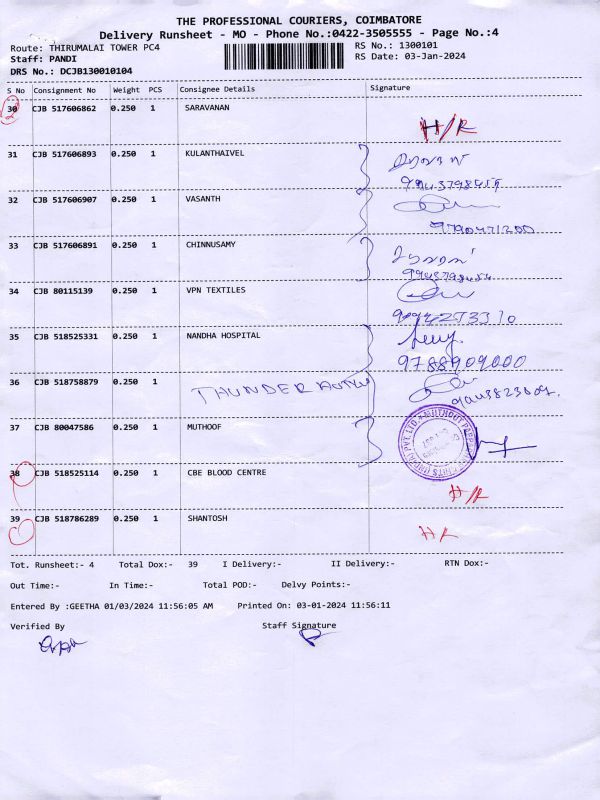 THE PROFESSIONAL COURIERS, COIMBATORE
Delivery Runsheet - MO - Phone No.:0422-3505555 - Page No.:4
Route: THIRUMALAI TOWER PC4
RS No.: 1300101
Staff: PANDI
RS Date: 03-Jan-2024
DRS No.: DCJB130010104
S No Consignment No Weight PCS Consignee Details Signature
30 CJB 517606862 0.250 1 SARAVANAN
H/R
31 CJB 517606893 0.250 1 KULANTHAIVEL
32 CJB 517606907 0.250 1 VASANTH
33 CJB 517606891 0.250 1 CHINNUSAMY
34 CJB 80115139 0.250 1 VPN TEXTILES
35 CJB 518525331 0.250 1 NANDHA HOSPITAL
9788909000
36 CJB 518758879 0.250 1 THUNDER
37 CJB 80047586 0.250 1 MUTHOOF
38 CJB 518525114 0.250 1 CBE BLOOD CENTRE
H/R
39 CJB 518786289 0.250 1 SHANTOSH
HR
Tot. Runsheet:- 4 Total Dox:- 39 I Delivery:- II Delivery:- RTN Dox:-
Out Time:- In Time:- Total POD:- Delvy Points:-
Entered By :GEETHA 01/03/2024 11:56:05 AM Printed On: 03-01-2024 11:56:11
Verified By Staff Signature